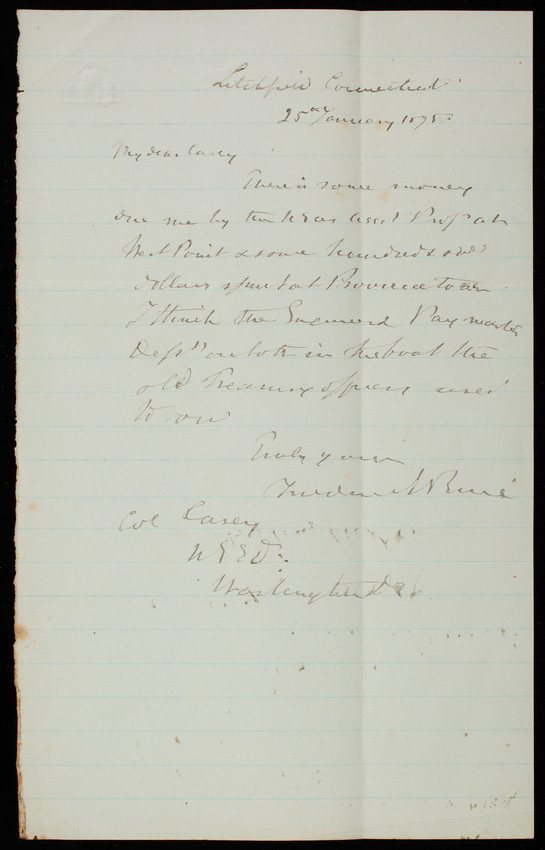 Litchfield Connecticut
25th January 1875.
My dear Casey
There is some money
due me by the U S as Asst Prof at
West Point & some hundred & odd
dollars spent at Provincetown
I think the Engineer & Pay master
Depts are both in the boat the
old Treasury officers used
to row
Truly yours
Col Casey
U S E
Washington D C